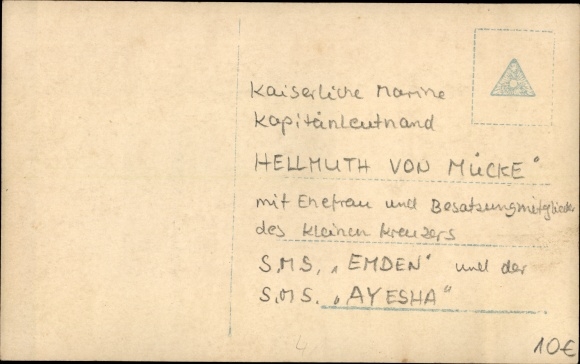 Kaiserliche Marine
Kapitänleutnand
HELLMUTH VON MÜCKE"
mit Ehefrau und Besatzungmitglieder
des kleinen Kreuzers
S.M.S. „EMDEN" und der
S.M.S. „AYESHA"
10€